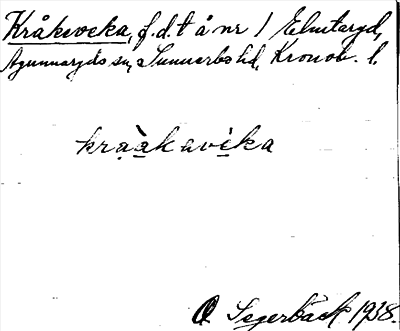 Kråkeveka, f.d.t å nr 1 Elmtaryd,
Agunnaryds sn, Sunnerbo hd, Kronob. l.
kraàkavèka
O Segerbäck 1938.